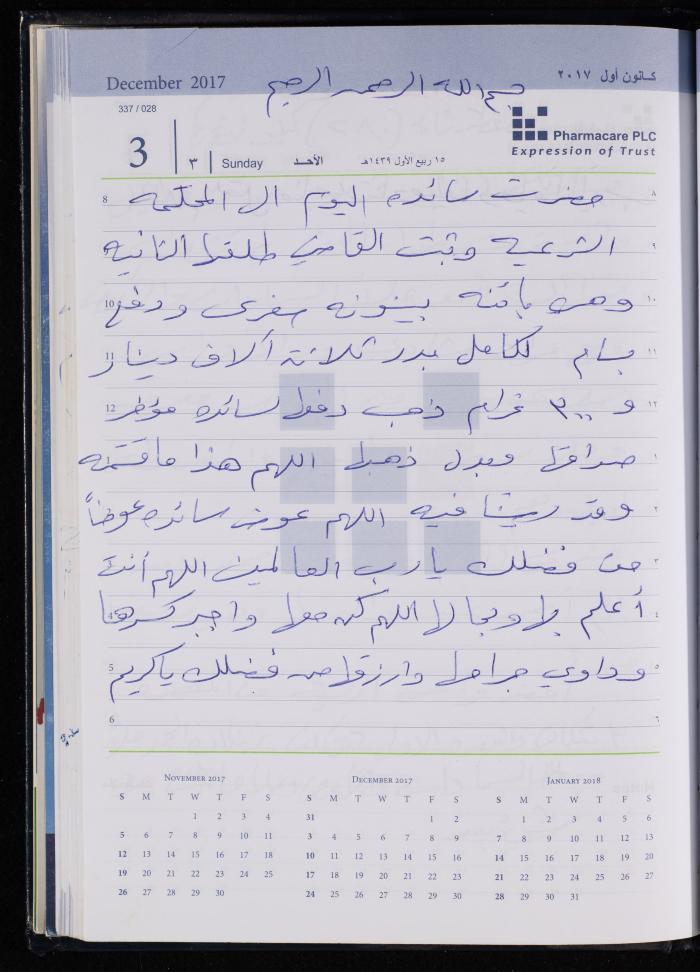 December 2017 بسم الله الرحمن الرحيم كانون أول ٢٠١٧
337 / 028
3 ٣ Sunday الأحد ١٥ ربيع الأول ١٤٣٩هـ
Pharmacare PLC
Expression of Trust
8 حضرت سائده اليوم الى المحكمه ٨
الشرعيه وثبت القاضي طلقتها الثانيه ٩
10 وهي بائنه بينونه صغرى ودفع ١٠
11 بسام لكامل بدر ثلاثة آلاف دينار ١١
12 و ٣٠٠ غرام ذهب دفعها لسائده مؤخر ١٢
صداقها وبدل ذهبها اللهم هذا ما قسمته ١
وقد رضينا فيه اللهم عوض سائده عوضاً ٢
من فضلك يا رب العالمين اللهم أنت ٣
4 أعلم بها وبحالها اللهم كن معها واجبر كسرها ٤
5 وداوي جراحها وارزقها من فضلك يا كريم ٥
6 ٦
NOVEMBER 2017
S M T W T F S
1 2 3 4
5 6 7 8 9 10 11
12 13 14 15 16 17 18
19 20 21 22 23 24 25
26 27 28 29 30
DECEMBER 2017
S M T W T F S
31 1 2
3 4 5 6 7 8 9
10 11 12 13 14 15 16
17 18 19 20 21 22 23
24 25 26 27 28 29 30
JANUARY 2018
S M T W T F S
1 2 3 4 5 6
7 8 9 10 11 12 13
14 15 16 17 18 19 20
21 22 23 24 25 26 27
28 29 30 31